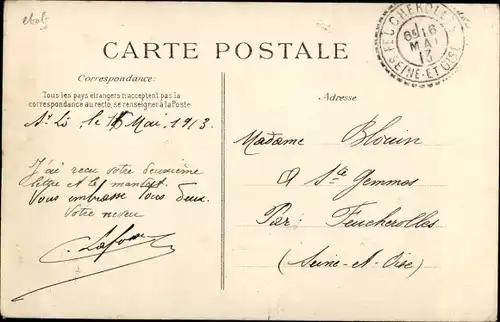 CARTE POSTALE
FEUCHEROLLES
16
MAI
13
SEINE-ET-OISE
Correspondance:
Tous les pays étrangers n'acceptent pas la
correspondance au recto, se renseigner à la Poste
Adresse
St Lô, le 15 Mai, 1913.
J'ai reçu votre deuxième
lettre et le mandat.
Vous embrasse tous deux.
Votre neveu
Madame Blouin
A Ste Gemmes
Par: Feucherolles
(Seine-et-Oise)